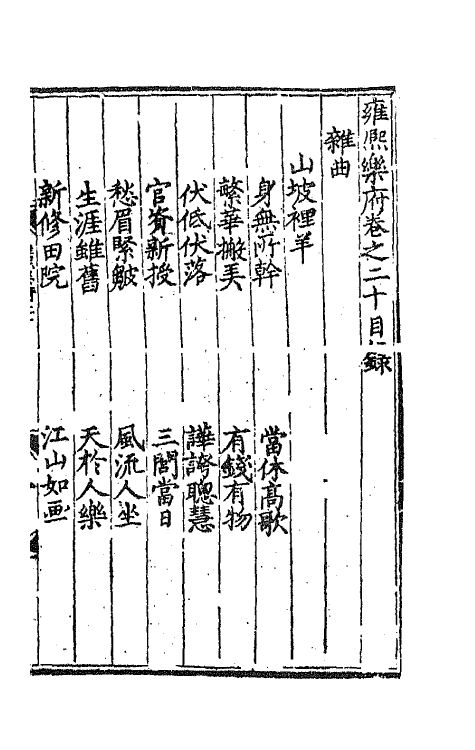 雍熙樂府卷之二十目錄
雜曲
山坡裡羊
身無所幹 當休高歌
繁華搬弄 有錢有物
伏低伏落 譁誇聰慧
官資新授 三閭當日
愁眉緊皺 風流人坐
生涯雖舊 天於人樂
新修田院 江山如画